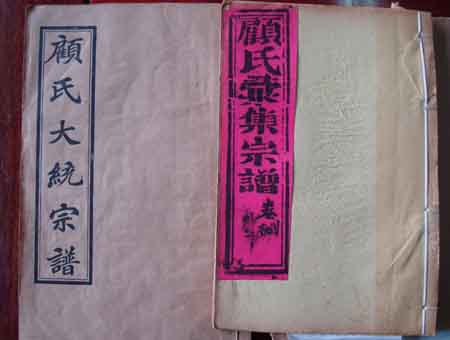 顧氏大統宗譜
顧氏彙集宗譜
卷